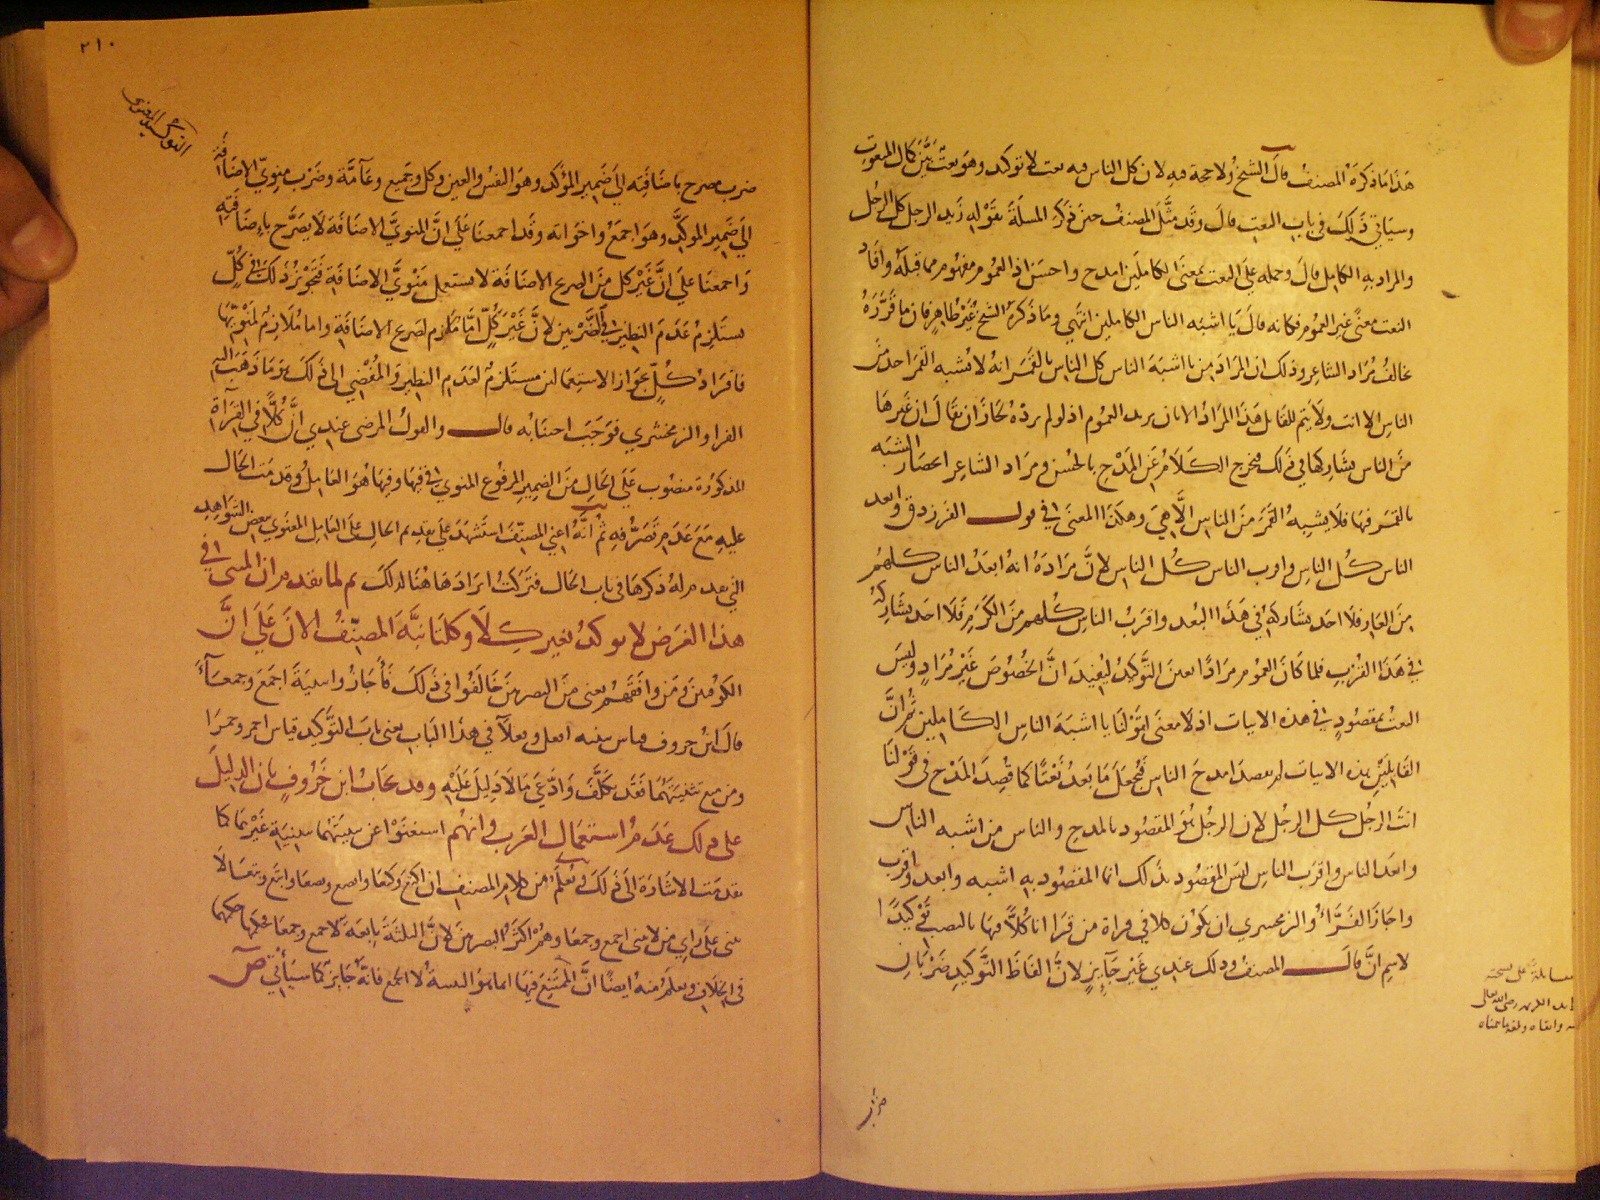 هذا ما ذكره المصنف قال الشيخ ولا حجة فيه لان كل الناس فيه نعت لا توكيد وهو نعت يبين كمال المنعوت
وسياتي ذلك في باب النعت قال وقد مثل المصنف حين ذكر المسلة بقوله زيد الرجل كل الرجل
والمراد به الكامل قال وحمله على النعت بمعنى الكاملين امدح واحسن اذ العموم مفهوم مما قبله وافاد
النعت معنى غير العموم فكانه قال يا اشبه الناس الكاملين انتهي وما ذكره الشيخ غير ظاهر فان ما قرره
مخالف مراد الشاعر وذلك ان المراد من يا اشبه الناس كل الناس بالقمر انه لا يشبه القمر احد من
الناس الا انت ولا يتم للقايل هذا المراد الا بان يريد العموم اذ لو لم يرده لجاز ان يقال ان غيرها
من الناس يشاركها في ذلك فيخرج الكلام عن المدح بالحسن ومراد الشاعر انحصار الشبه
بالقمر فيها فلا يشبه القمر من الناس الا هي وهكذا المعنى في قول الفرزدق وابعد
الناس كل الناس واقرب الناس كل الناس لان مراده انه ابعد الناس كلهم
من العار فلا احد يشاركه في هذا البعد واقرب الناس كلهم من الكرم فلا احد يشاركه
في هذا القرب فلما كان العموم مرادا تعين التوكيد ليفيد ان الخصوص غير مراد وليس
النعت بمقصود في هذه الابيات اذ لا معنى لقولنا يا اشبه الناس الكاملين ثم ان
القايلين هذه الابيات لم يقصد امدح الناس فيجعل ما بعد نعتا كما قصد المدح في قولنا
انت الرجل كل الرجل لان الرجل هو المقصود بالمدح والناس من اشبه الناس
وابعد الناس واقرب الناس ليس المقصود بذلك انما المقصود به اشبه وابعد واقرب
واجاز الفراء والزمخشري ان يكون كلا في قراة من قرا انا كلا فيها بالنصب توكيدا
لاسم ان قال المصنف وذلك عندي غير جايز لان الفاظ التوكيد ضربان
ضرب
٢١٠
التوكيد المعنوي
ضرب مصرح باضافته الى ضمير المؤكد وهو النفس والعين وكل وجميع وعامة وضرب منوي الاضافة
الى ضمير الموكد وهو اجمع واخواته وقد اجمعنا على ان المنوي الاضافة لا يصرح باضافته
واجمعنا على ان غير كل من الصريح الاضافة لا يستعمل منوي الاضافة فتجويز ذلك في كل
يستلزم عدم النظير في الضربين لان غير كل اما ملازم لصريح الاضافة واما ملازم لمنويها
فافراد كل بجواز الاستعمالين مستلزم لعدم النظير والمفضي الى ذلك هو ما ذهب اليه
الفرا والزمخشري فوجب اجتنابه قال والقول المرضي عندي ان كلا في القراة
المذكورة منصوب على الحال من الضمير المرفوع المنوي في فيها وفيها هو العامل وقد قدمت الحال
عليه مع عدم تصرفه ثم انه اعني المصنف استشهد على تقديم الحال على العامل المعنوي ببعض الشواهد
التي تقدم له ذكرها في باب الحال فتركت ايرادها هنا لذلك ثم لما تقدم ان المثنى في
هذا الغرض لا يوكد بغير كلا وكلتا نبه المصنف الان على ان
الكوفيين ومن وافقهم يعني من البصريين خالفوا في ذلك فاجازوا تثنية اجمع وجمعاء
قال ابن خروف قياس تثنية افعل وفعلا في هذا الباب يعني باب التوكيد قياس احمر وحمرا
ومن منع تثنيتهما فقد تكلف وادعى ما لا دليل عليه وقد يجاب ابن خروف بان الدليل
على ذلك عدم استعمال العرب وانهم استغنوا عن تثنيتهما بتثنية غيرهما كما
تقدمت الاشارة الى ذلك وعلم من كلام المصنف ان اكتع وكتعا وابصع وبصعا وابتع وبتعا لا
يثنى على راي من لا يثني اجمع وجمعا وهم اكثر البصريين لان الثلثة تابعة لاجمع وجمعا فحكمها حكمهما
في الخلاف ويعلم منه ايضا ان الممتنع فيها انما هو التثنية لا الجمع فانه جايز كما سياتي ص